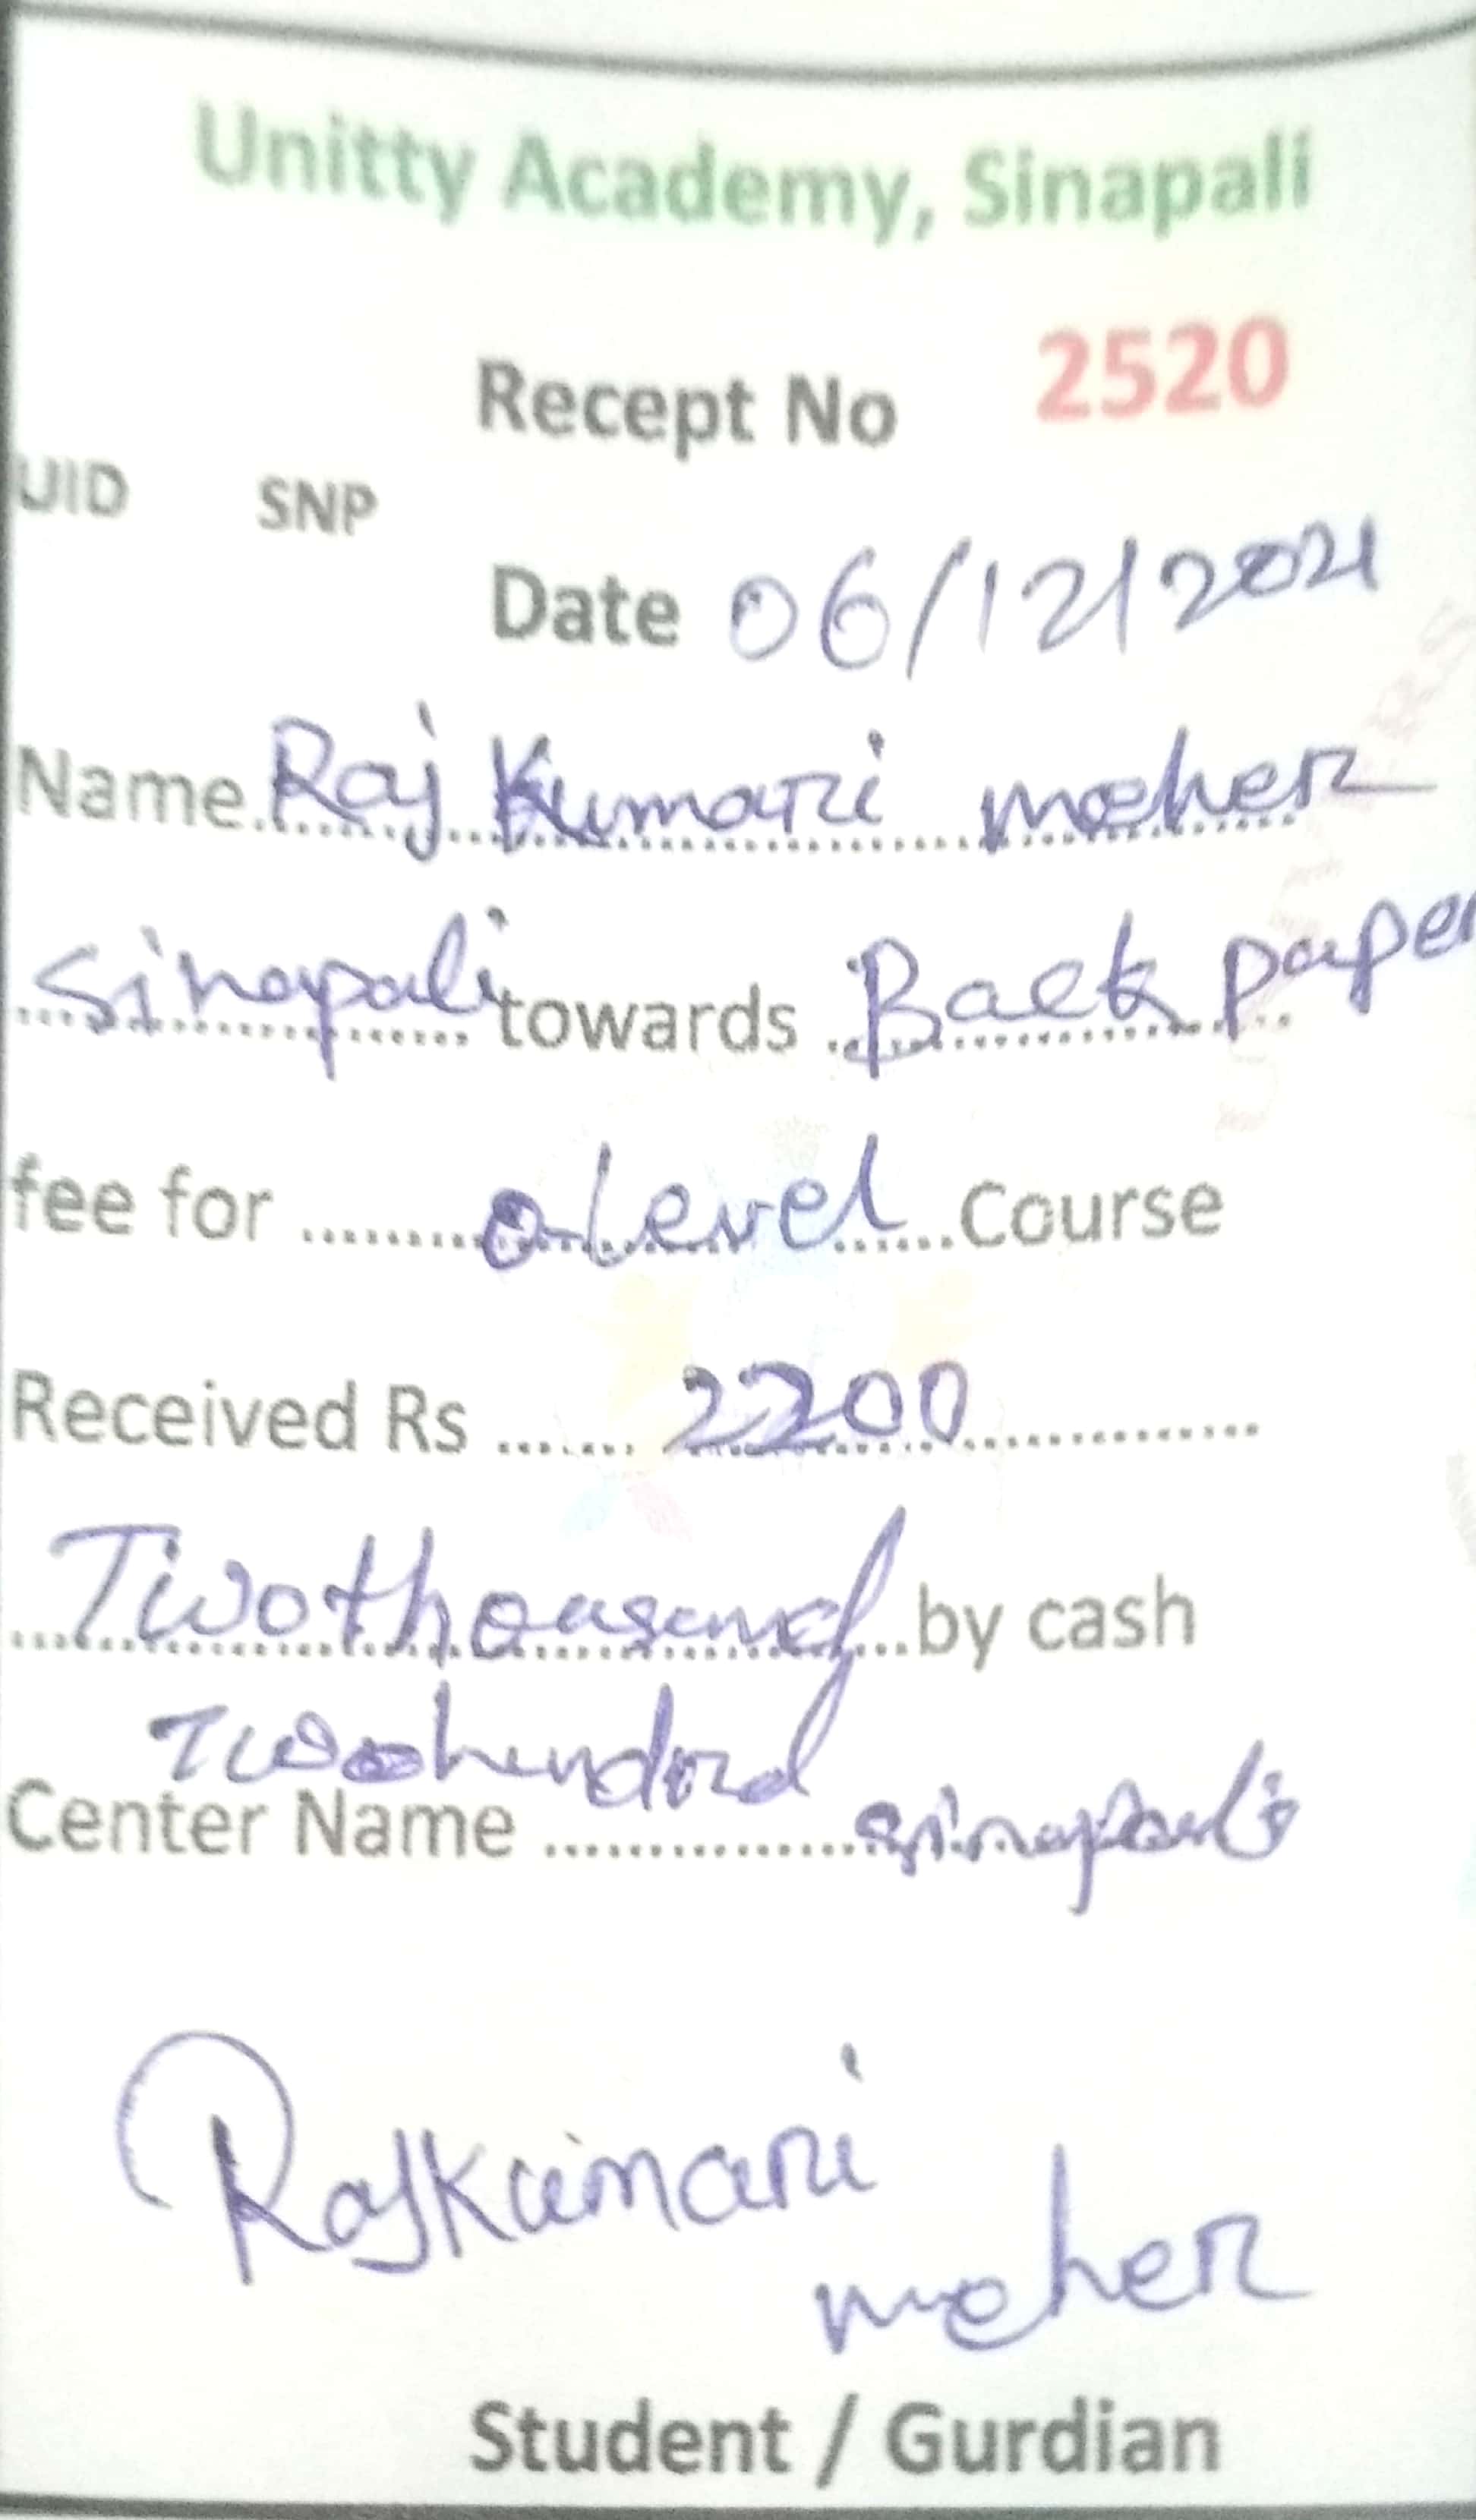 Unitty Academy, Sinapali
Recept No 2520
UID SNP
Date 06/12/2021
Name Raj Kumari meher
Sinapali towards Back paper
fee for o-Level Course
Received Rs 2200
Two thousand by cash
Two hundord
Center Name sinapali
Rajkumari
meher
Student / Gurdian